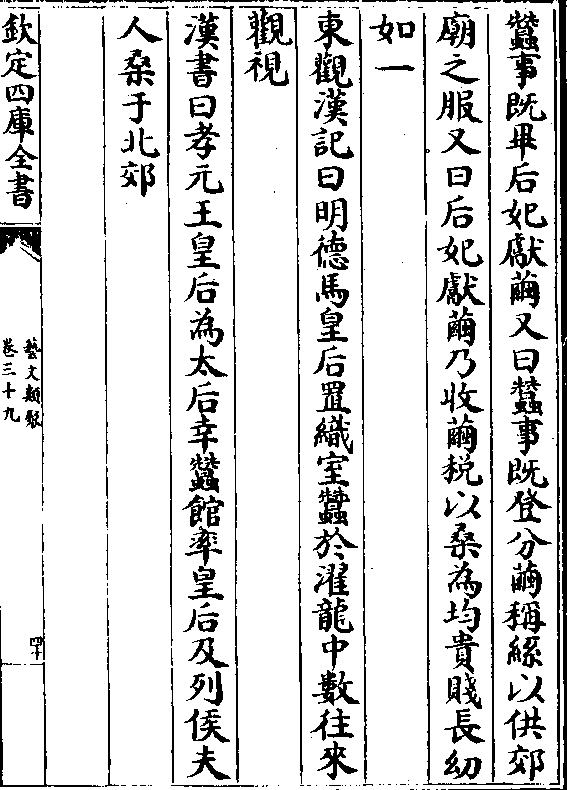 蠶事既畢后妃獻繭又曰蠶事既登分繭稱絲以供郊
廟之服又曰后妃獻繭乃收繭稅以桑為均貴賤長幼
如一
東觀漢記曰明德馬皇后置織室蠶於濯龍中數往來
觀視
漢書曰孝元王皇后為太后幸蠶館率皇后及列侯夫
人桑于北郊
欽定四庫全書
藝文類聚
卷三十九